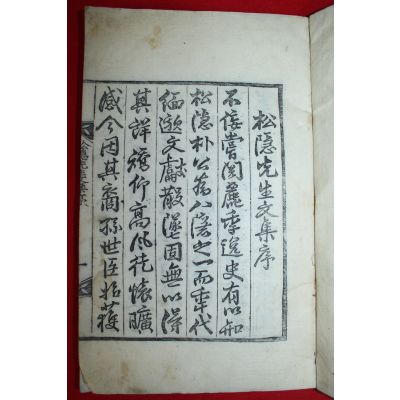 松隱先生文集序
不佞嘗閱麗季逸史有以知
松隱朴公爲八隱之一而年代
緬邈文獻散逸固無以得
其詳矯仰高風托懷曠
感今因其裔孫世臣始獲